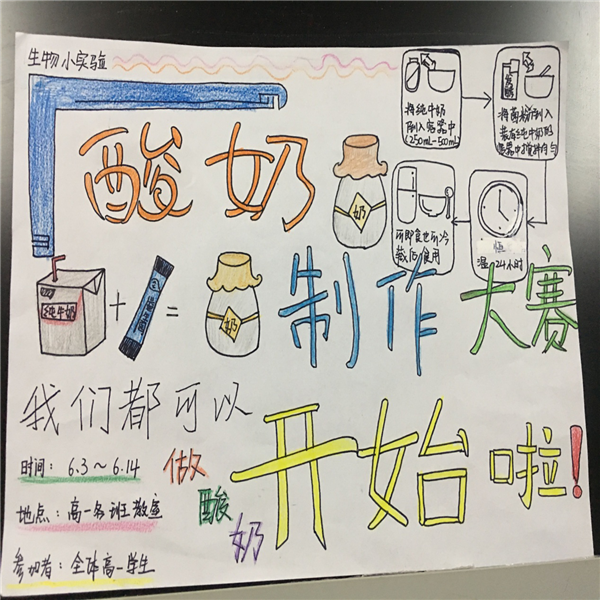 生物小实验
将纯牛奶
倒入容器中
(250ml-500ml)
将菌粉倒入
装有纯牛奶的
容器中搅拌均匀
恒
温 24小时
可即食也可冷
藏后食用
酸奶
奶
纯牛奶
+
=
奶
制作大赛
我们都可以
做
酸
奶
开始啦!
时间:6.3~6.14
地点:高一各班教室
参加者:全体高一学生